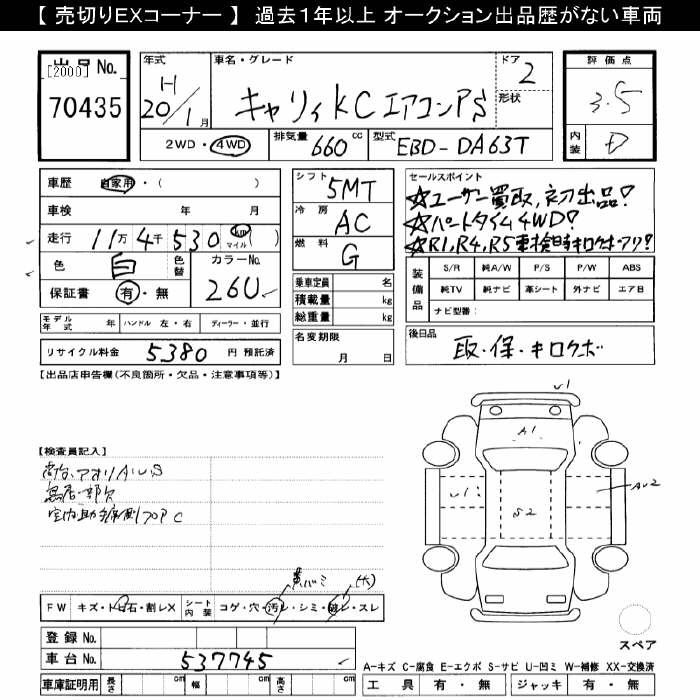 【 売切りEXコーナー 】 過去1年以上 オークション出品歴がない車両
出品 No.
[2000]
70435
年式
H
20/1月
車名・グレード
キャリィ KC エアコンPS
ドア
2
形状
評価点
3.5
内装
D
2WD・4WD
排気量
660 cc
型式
EBD-DA63T
車歴
自家用・( )
車検 年 月
走行 11万 4千 530 km マイル )
色 白
色替
カラーNo.
26U
保証書 有・無
モデル年式 年
ハンドル 左・右
ディーラー・並行
リサイクル料金 5380 円 預託済
シフト 5MT
冷房 AC
燃料 G
乗車定員 名
積載量 kg
総重量 kg
名変期限
月 日
セールスポイント
☆ユーザー買取、初出品!
☆パートタイム4WD!
☆R1,R4,R5車検時キロクボアリ!
装備品
S/R 純A/W P/S P/W ABS
純TV 純ナビ 革シート 外ナビ エアB
ナビ型番:
後日品
取・保・キロクボ
【出品店申告欄(不良箇所・欠品・注意事項等)】
【検査員記入】
荷台、アオリA・U・S
鳥居一部欠
室内助手席側フロアC
黄バミ
(大)
FW キズ・トビ石・割レX
シート内装 コゲ・穴・汚レ・シミ・破レ・スレ
登録 No.
車台 No. 537745
車庫証明用 長さ cm 幅 cm 高さ cm
U1
A1
U1
S2
AU2
スペア
A-キズ C-腐食 E-エクボ S-サビ U-凹ミ W-補修 XX-交換済
工具 有・無 ジャッキ 有・無